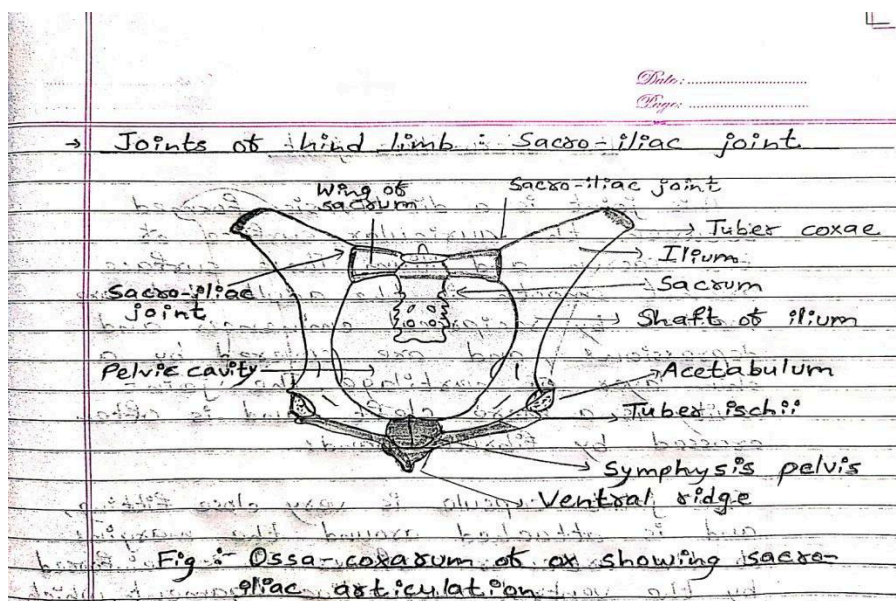 Date: ........................
Page: ........................
→ Joints of hind limb : Sacro-iliac joint
Wing of
sacrum
Sacro-iliac joint
Tuber coxae
Ilium
Sacrum
Sacro-iliac
joint
Shaft of ilium
Pelvic cavity
Acetabulum
Tuber ischii
Symphysis pelvis
Ventral ridge
Fig :- Ossa-coxarum of ox showing sacro-
iliac articulation